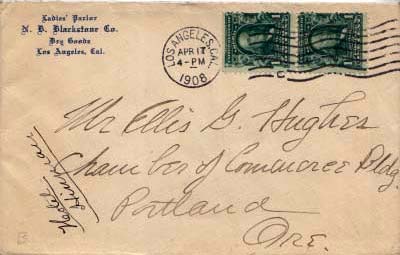 Ladies' Parlor
N. B. Blackstone Co.
Dry Goods
Los Angeles, Cal.
LOS ANGELES, CAL.
APR 17
4-PM
1908
Mr Ellis G. Hughes
Chamber of Commerce Bldg.
Portland
Ore.